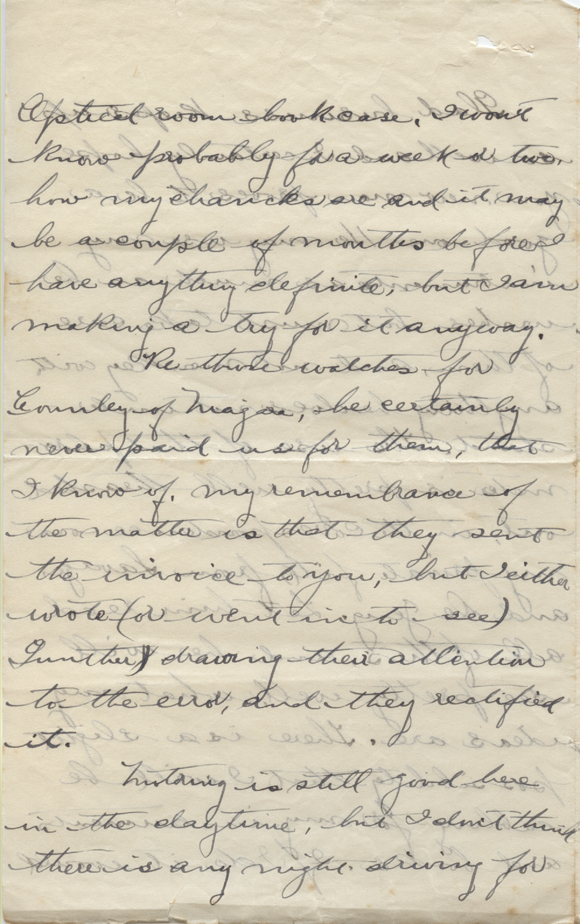 Optical room bookcase. I won't
know probably for a week or two.
how my chances are and it may
be a couple of months before I
have anything definite, but I am
making a try for it anyway.
Re those watches for
County of she certainly
never paid us for them, that
I know of. My remembrance of
the matter is that they sent
the invoice to you, but I either
wrote (or went in to see)
Gunther) drawing their attention
to the error, and they rectified
it.
Motoring is still good here
in the daytime, but I don't think
there is any night driving for